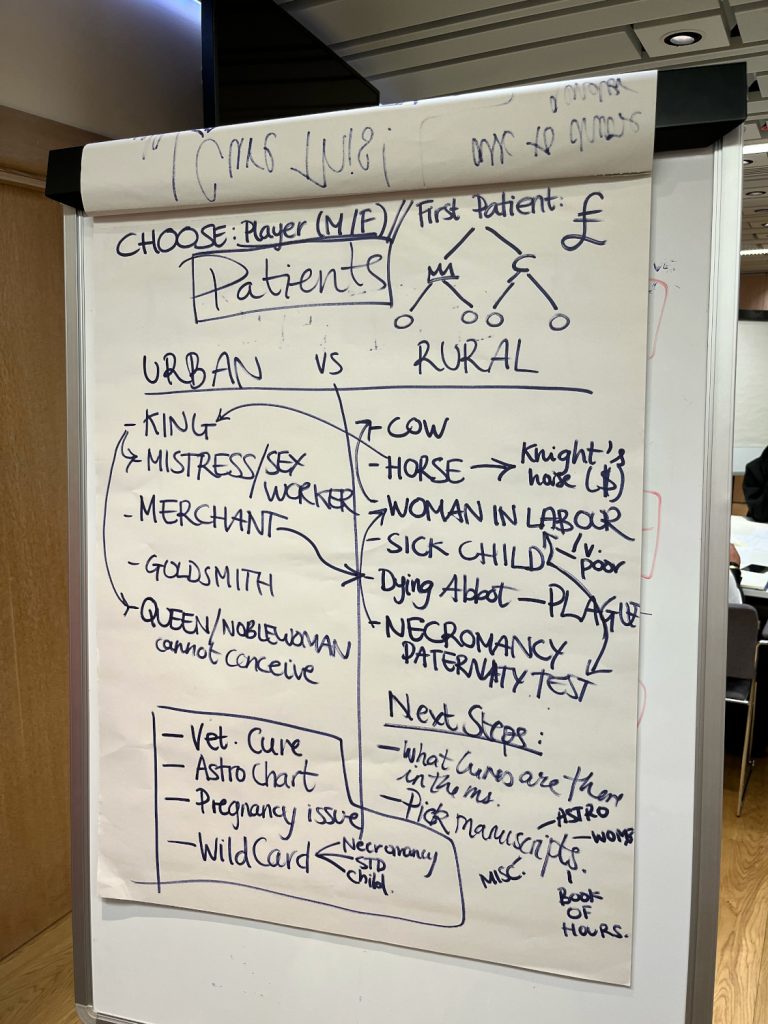 CHOOSE: Player (M/F) // First Patient: £
Patients
C
URBAN vs RURAL
- KING
- MISTRESS/SEX
WORKER
- MERCHANT
- GOLDSMITH
- QUEEN/NOBLEWOMAN
cannot conceive
- COW
- HORSE → Knight's
horse ($)
- WOMAN IN LABOUR
- SICK CHILD v.
poor
- Dying Abbot — PLAGUE
- NECROMANCY
PATERNATY TEST
— Vet. Cure
— Astro Chart
— Pregnancy issue
— Wild Card
Necromancy
STD
Child.
Next Steps:
— What Cures are there
in the ms.
— Pick manuscripts.
ASTRO
WOMB
MISC.
BOOK
OF
HOURS.